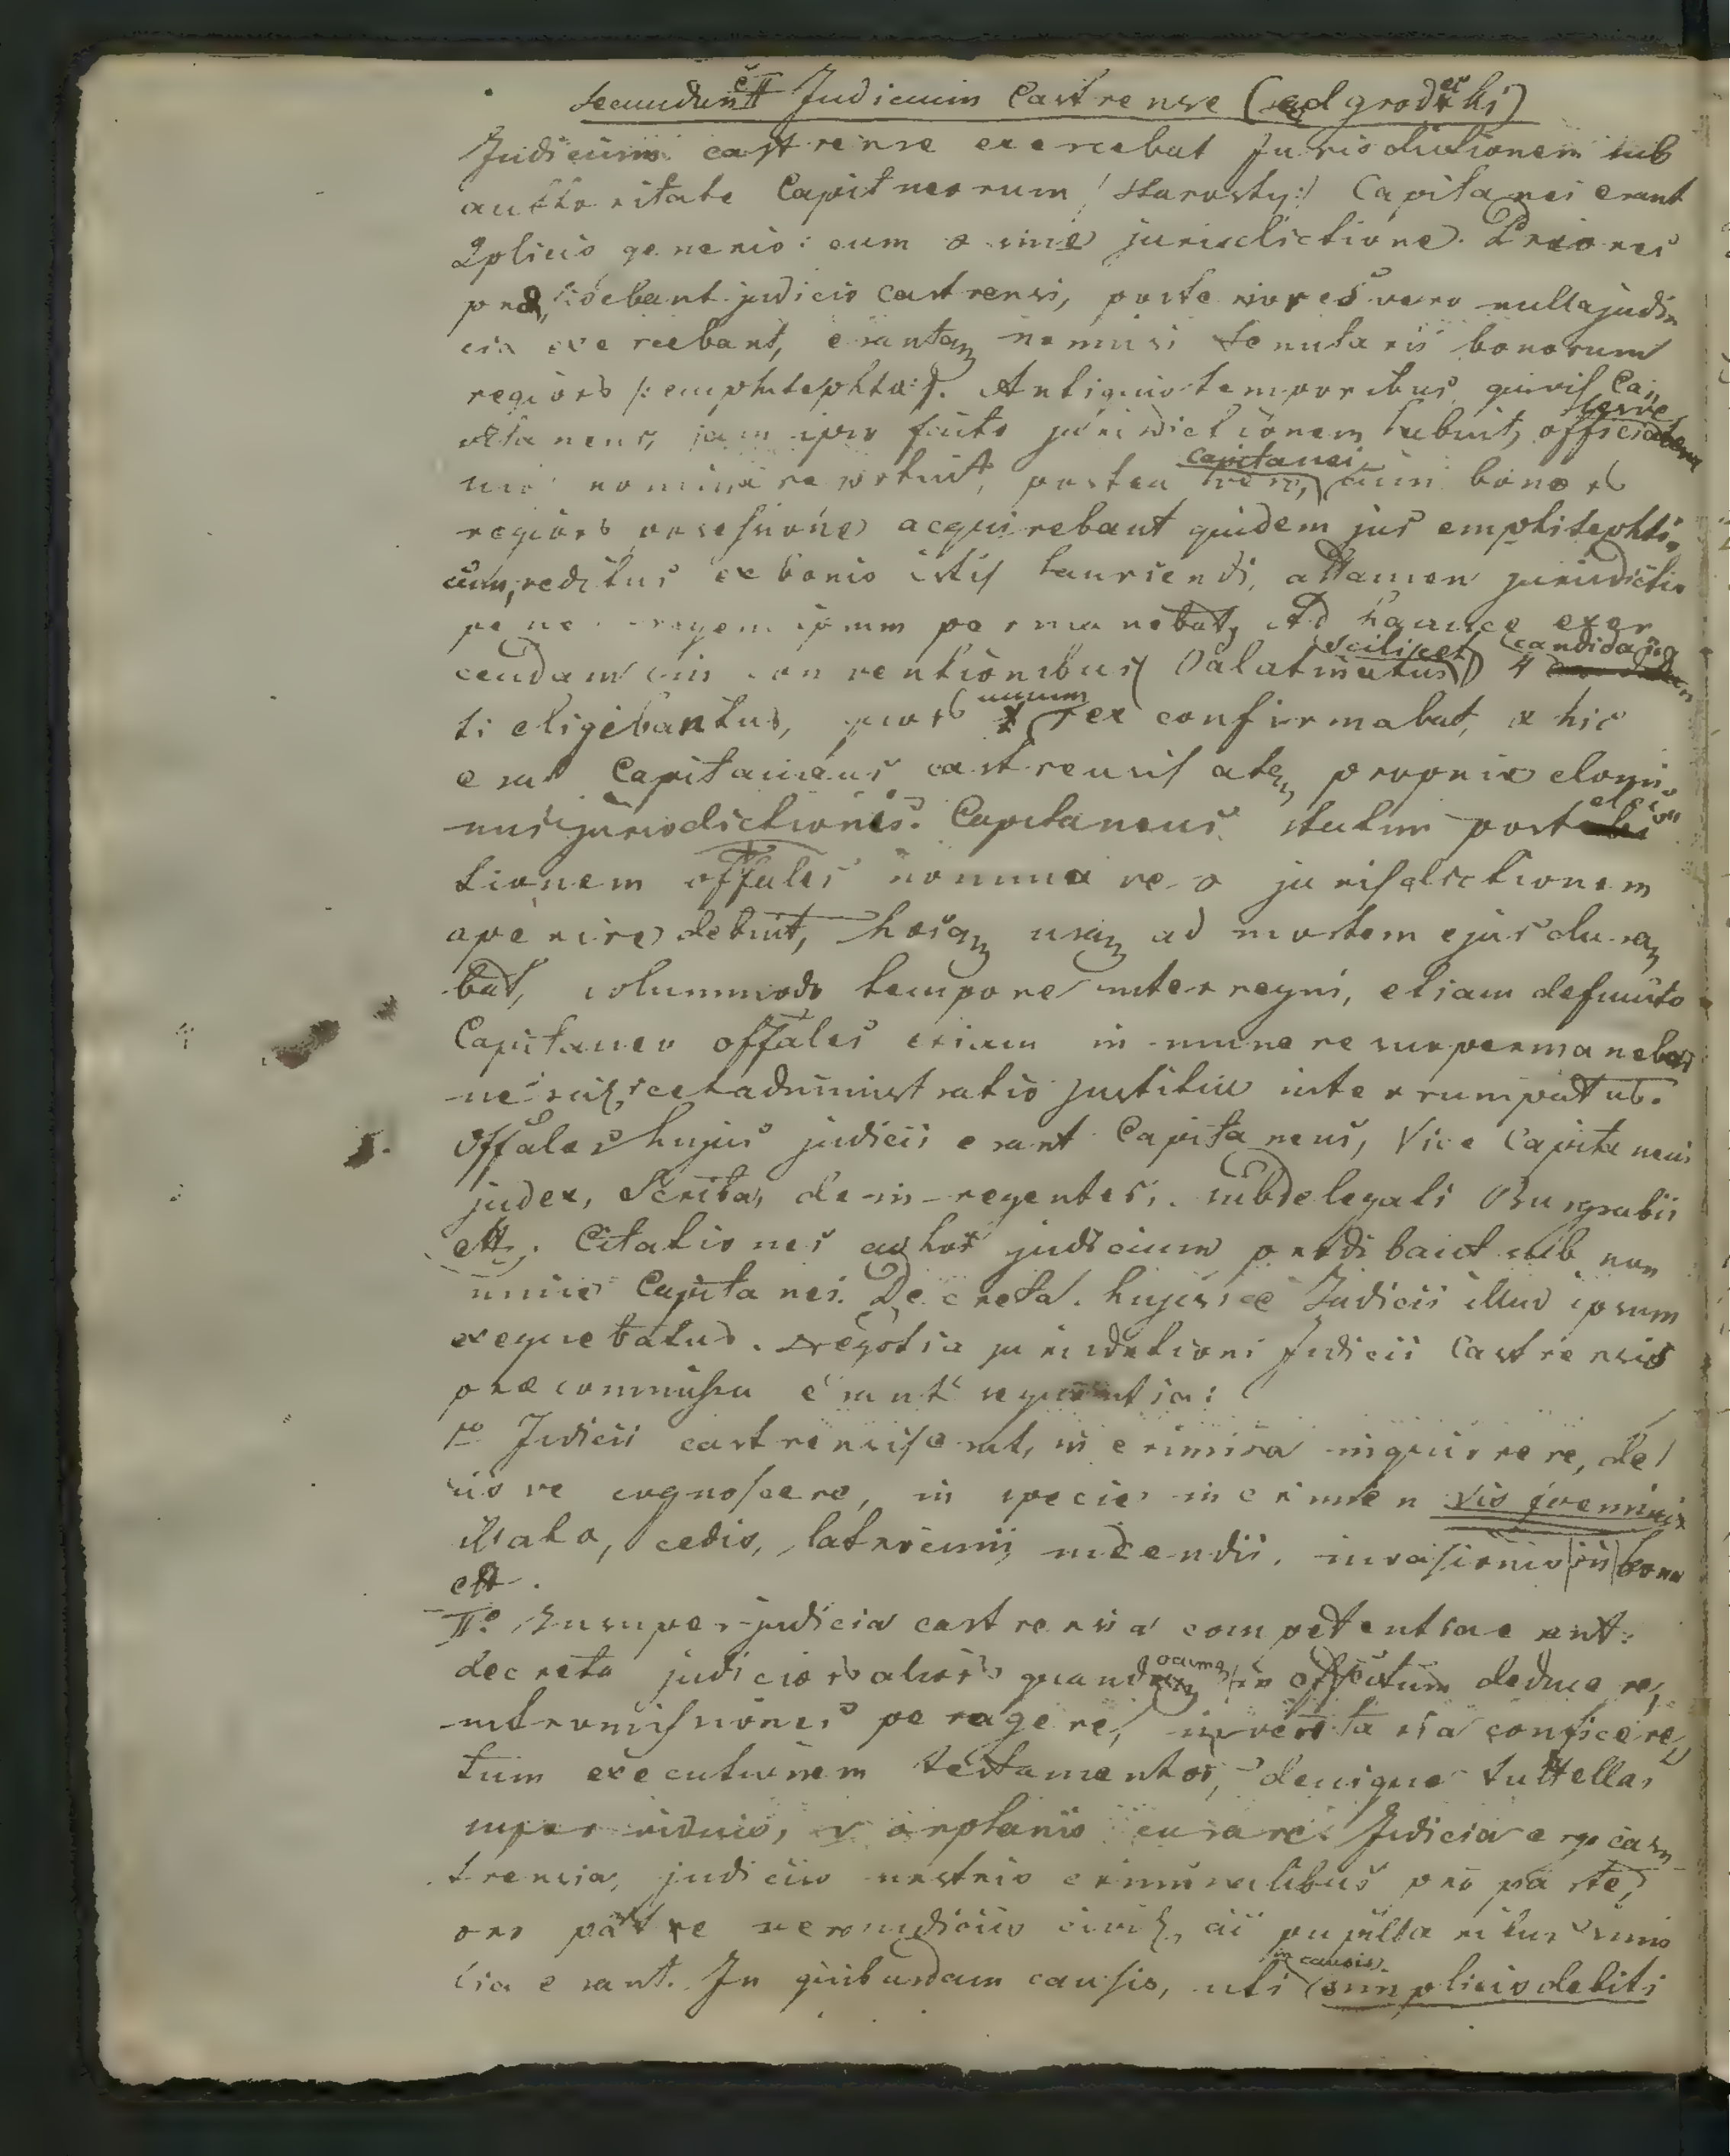 Judicium Castrense (sąd grodzki)
Judicium castrense exercebat Jurisdictionem sub
authoritate Capitneorum /: Starosty :/ Capitanei erant
2plicis generis: cum & sine jurisdictione. Priores
præsidebant judicio castrensi, posteriores vero nulla judi-
cia exercebant, erantq nonnisi tenutarii bonorum
regiorb /: emphitephta :/. Antiquis temporibus quivis Ca-
pitaneus, jam ipso facto jurisdictionem habuit, officiales
nominare potuit, postea capitanei cum bonorb
regiorb possessione acquirebant quidem jus emphitephti-
cum, reditus ex bonis istis hauriendi, attamen jurisdictio
pene regem ipsum permanebat, Ad hancce exer
cendam in conventionibus Palatinatus scilicet 4 candida
ti eligebantur, quorb unum rex confirmabat, & hic
erat Capitaneus castrensis atq proprie domi-
nus jurisdictionis. Capitaneus statim post elec
tionem offales nominare & jurisdictionem
aperire debuit, hæcq usq ad mortem ejus dura
bat, solummodo tempore interregni, etiam defuncto
Capitaneo offales etiam in munere permaneba
ne scilicet administratio justitiæ interrumpatur.
Offales hujus judicii erant Capitaneus, Vice Capitaneus
judex, Scriba, dein regentes, subdelegati Burgrabii
ett. Citationes ad hoc judicium prodibant sub no
mine Capitanei. Decreta hujusce Judicii illud ipsum
exequebatur. Negotia jurisdictioni Judicii Castrensis
præcommissa erant sequentia:
1o Judicii castrensis erat, in crimina inquirere, de
iis re cognoscere, in specie in crimen vis foeminis
illata, cedis, latrocinii, incendii, invasionis in bona
ett.
IIo Insuper judicia castrensia competentia erant:
decreta judiciorb aliorb quandocunq in effectum deducere,
intromissiones peragere, inventaria conficere
tum executionem testamentor, denique tuttellas
super viduis, & orphanis curare. Judicia ergo cas
trensia, judiciis nostris criminalibus pro parte,
pro parte vero judiciis civil, ac pupillaribus simi
lia erant. In quibusdam causis, uti in causis simplicis debiti